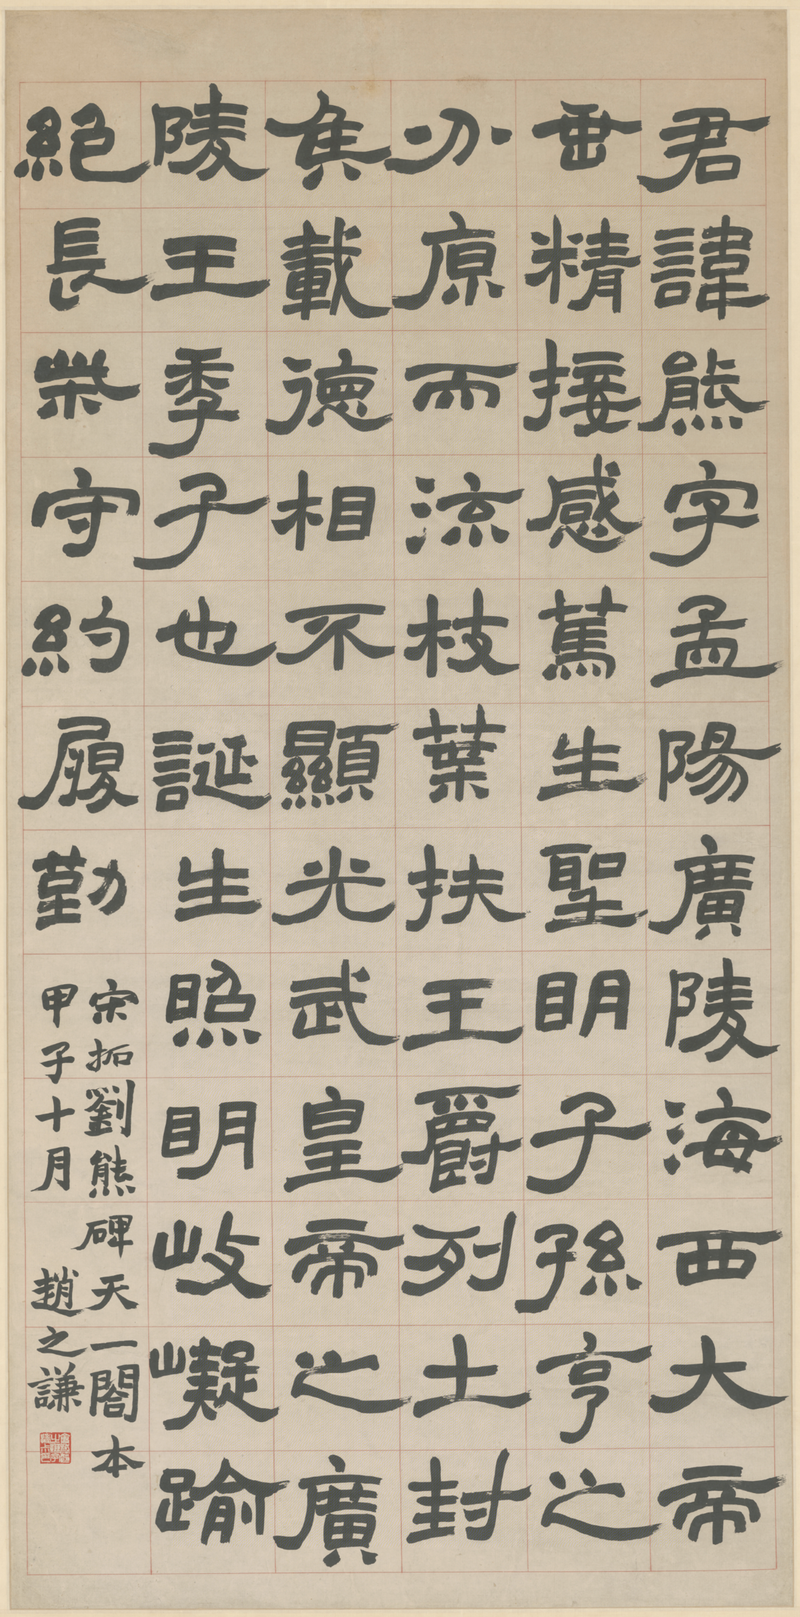 君諱熊字孟陽廣陵海西大帝
垂精接感篤生聖明子孫亨之
分原而流枝葉扶王爵列土封
矦載德相不顯光武皇帝之廣
陵王季子也誕生照明岐嶷踰
絕長𣓤守約履勤
宋拓劉熊碑天一閣本
甲子十月
趙之謙